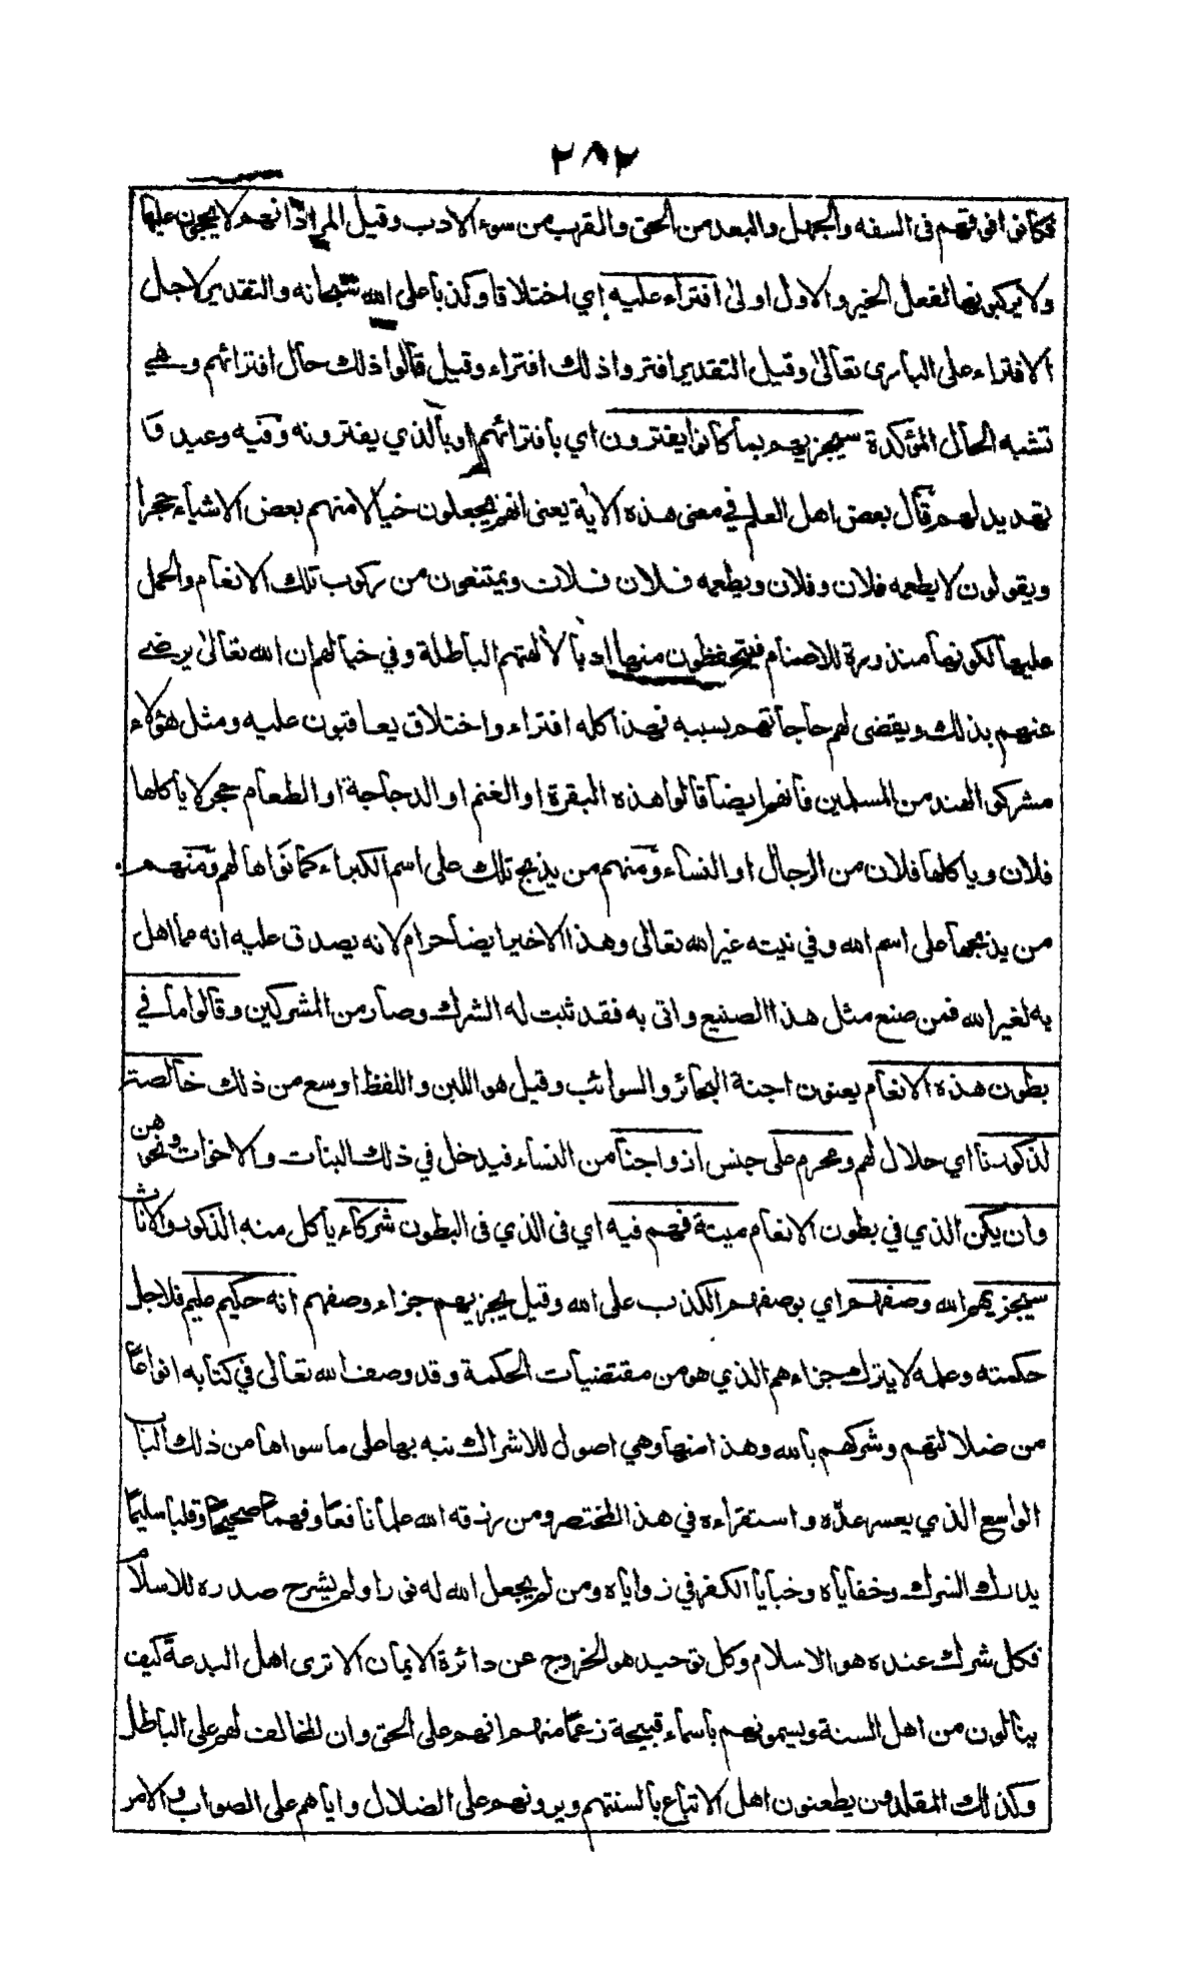 ٢٨٢
فكانوا فوقهم في السفه والجهل والبعد من الحق والقرب من سوء الادب وقيل المراد انهم لا يحجون عليها
ولا يركبونها لفعل الخير والاول اولى افتراء عليه اي اختلاقا وكذبا على الله سبحانه والتقدير لاجل
الافتراء على الباري تعالى وقيل التقدير افتروا ذلك افتراء وقيل قالوا ذلك حال افترائهم وهي
تشبه الحال المؤكدة سيجزيهم بما كانوا يفترون اي بافترائهم او بالذي يفترونه وفيه وعيد و
تهديد لهم قال بعض اهل العلم في معنى هذه الآية يعنى انهم يجعلون خيالا منهم بعض الاشياء حجرا
ويقولون لا يطعمه فلان وفلان ويطعمه فلان فلان ويمتنعون من ركوب تلك الانعام والحمل
عليها لكونها منذورة للاصنام فيتحفظون منها ادبا لآلهتهم الباطلة وفي خيالهم ان الله تعالى يرضى
عنهم بذلك ويقضى لهم حاجاتهم بسببه فهذا كله افتراء واختلاق يعاقبون عليه ومثل هؤلاء
مشركو الهند من المسلمين فانهم ايضا قالوا هذه البقرة او الغنم او الدجاجة او الطعام حجر لا ياكلها
فلان وياكلها فلان من الرجال او النساء ومنهم من يذبح تلك على اسم الكبراء كما نواها لهم ومنهم
من يذبحها على اسم الله وفي نيته غير الله تعالى وهذا الاخير ايضا حرام لانه يصدق عليه انه مما اهل
به لغير الله فمن صنع مثل هذا الصنيع واتى به فقد ثبت له الشرك وصار من المشركين وقالوا ما في
بطون هذه الانعام يعنون اجنة البحائر والسوائب وقيل هو اللبن واللفظ اوسع من ذلك خالصة
لذكورنا اي حلال لهم ومحرم على جنس ازواجنا من النساء فيدخل في ذلك البنات والاخوات ونحوهن
وان يكن الذي في بطون الانعام ميتة فهم فيه اي فى الذي فى البطون شركاء ياكل منه الذكور والاناث
سيجزيهم الله وصفهم اي بوصفهم الكذب على الله وقيل يجزيهم جزاء وصفهم انه حكيم عليم فلاجل
حكمته وعلمه لا يترك جزاءهم الذي هو من مقتضيات الحكمة وقد وصف الله تعالى في كتابه انواعا
من ضلالتهم وشركهم بالله وهذا منها وهي اصول للاشراك نبه بها على ما سواها من ذلك الباب
الواسع الذي يعسر عدّه واستقراءه في هذا المختصر ومن رزقه الله علما نافعا وفهما صحيحا وقلبا سليما
يدرك الشرك وخفاياه وخبايا الكفر في زواياه ومن لم يجعل الله له نورا ولم يشرح صدره للاسلام
فكل شرك عنده هو الاسلام وكل توحيد هو الخروج عن دائرة الايمان الا ترى اهل البدعة كيف
ينالون من اهل السنة ويسمونهم باسماء قبيحة زعما منهم انهم على الحق وان المخالف لهم على الباطل
وكذلك المقلدون يطعنون اهل الاتباع بالسنتهم ويرونهم على الضلال واياهم على الصواب والامر